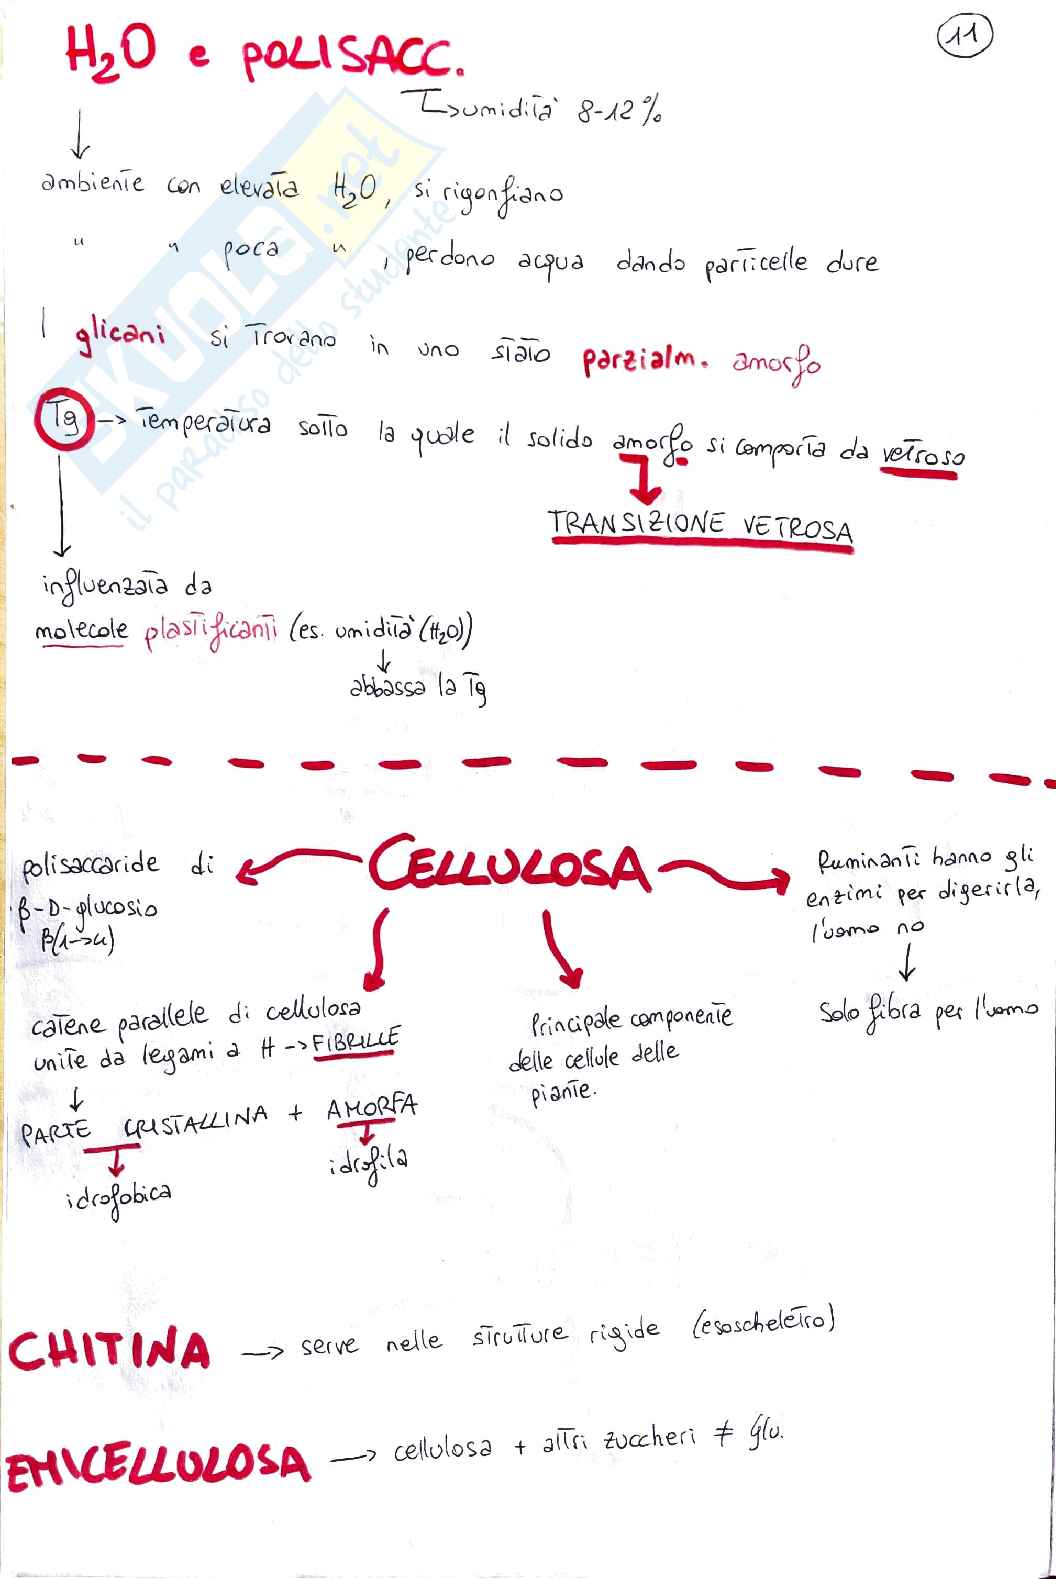 11
H₂O e POLISACC.
↳ umidità 8-12%
↓
ambiente con elevata H₂O, si rigonfiano
" " poca " , perdono acqua dando particelle dure
I glicani si trovano in uno stato parzialm. amorfo
Tg → Temperatura sotto la quale il solido amorfo si comporta da vetroso
TRANSIZIONE VETROSA
influenzata da
molecole plastificanti (es. umidità (H₂O))
↓
abbassa la Tg
CELLULOSA
polisaccaride di
β-D-glucosio
β(1→4)
Ruminanti hanno gli
enzimi per digerirla,
l'uomo no
↓
Solo fibra per l'uomo
catene parallele di cellulosa
unite da legami a H → FIBRILLE
↓
PARTE CRISTALLINA + AMORFA
idrofobica
idrofila
Principale componente
delle cellule delle
piante.
CHITINA → serve nelle strutture rigide (esoscheletro)
EMICELLULOSA → cellulosa + altri zuccheri ≠ glu.
SKUOLA.net
il paradiso dello studente